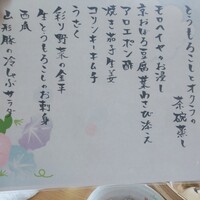 とうもろこしとオクラの
茶碗蒸し
モロヘイヤのお浸し
京おぼろ豆腐 葉わさび添え
アロエポン酢
焼き茄子生姜
コリンキーキムチ
うざく
彩り野菜の金平
生とうもろこしのお刺身
西瓜
山形豚の冷しゃぶサラダ